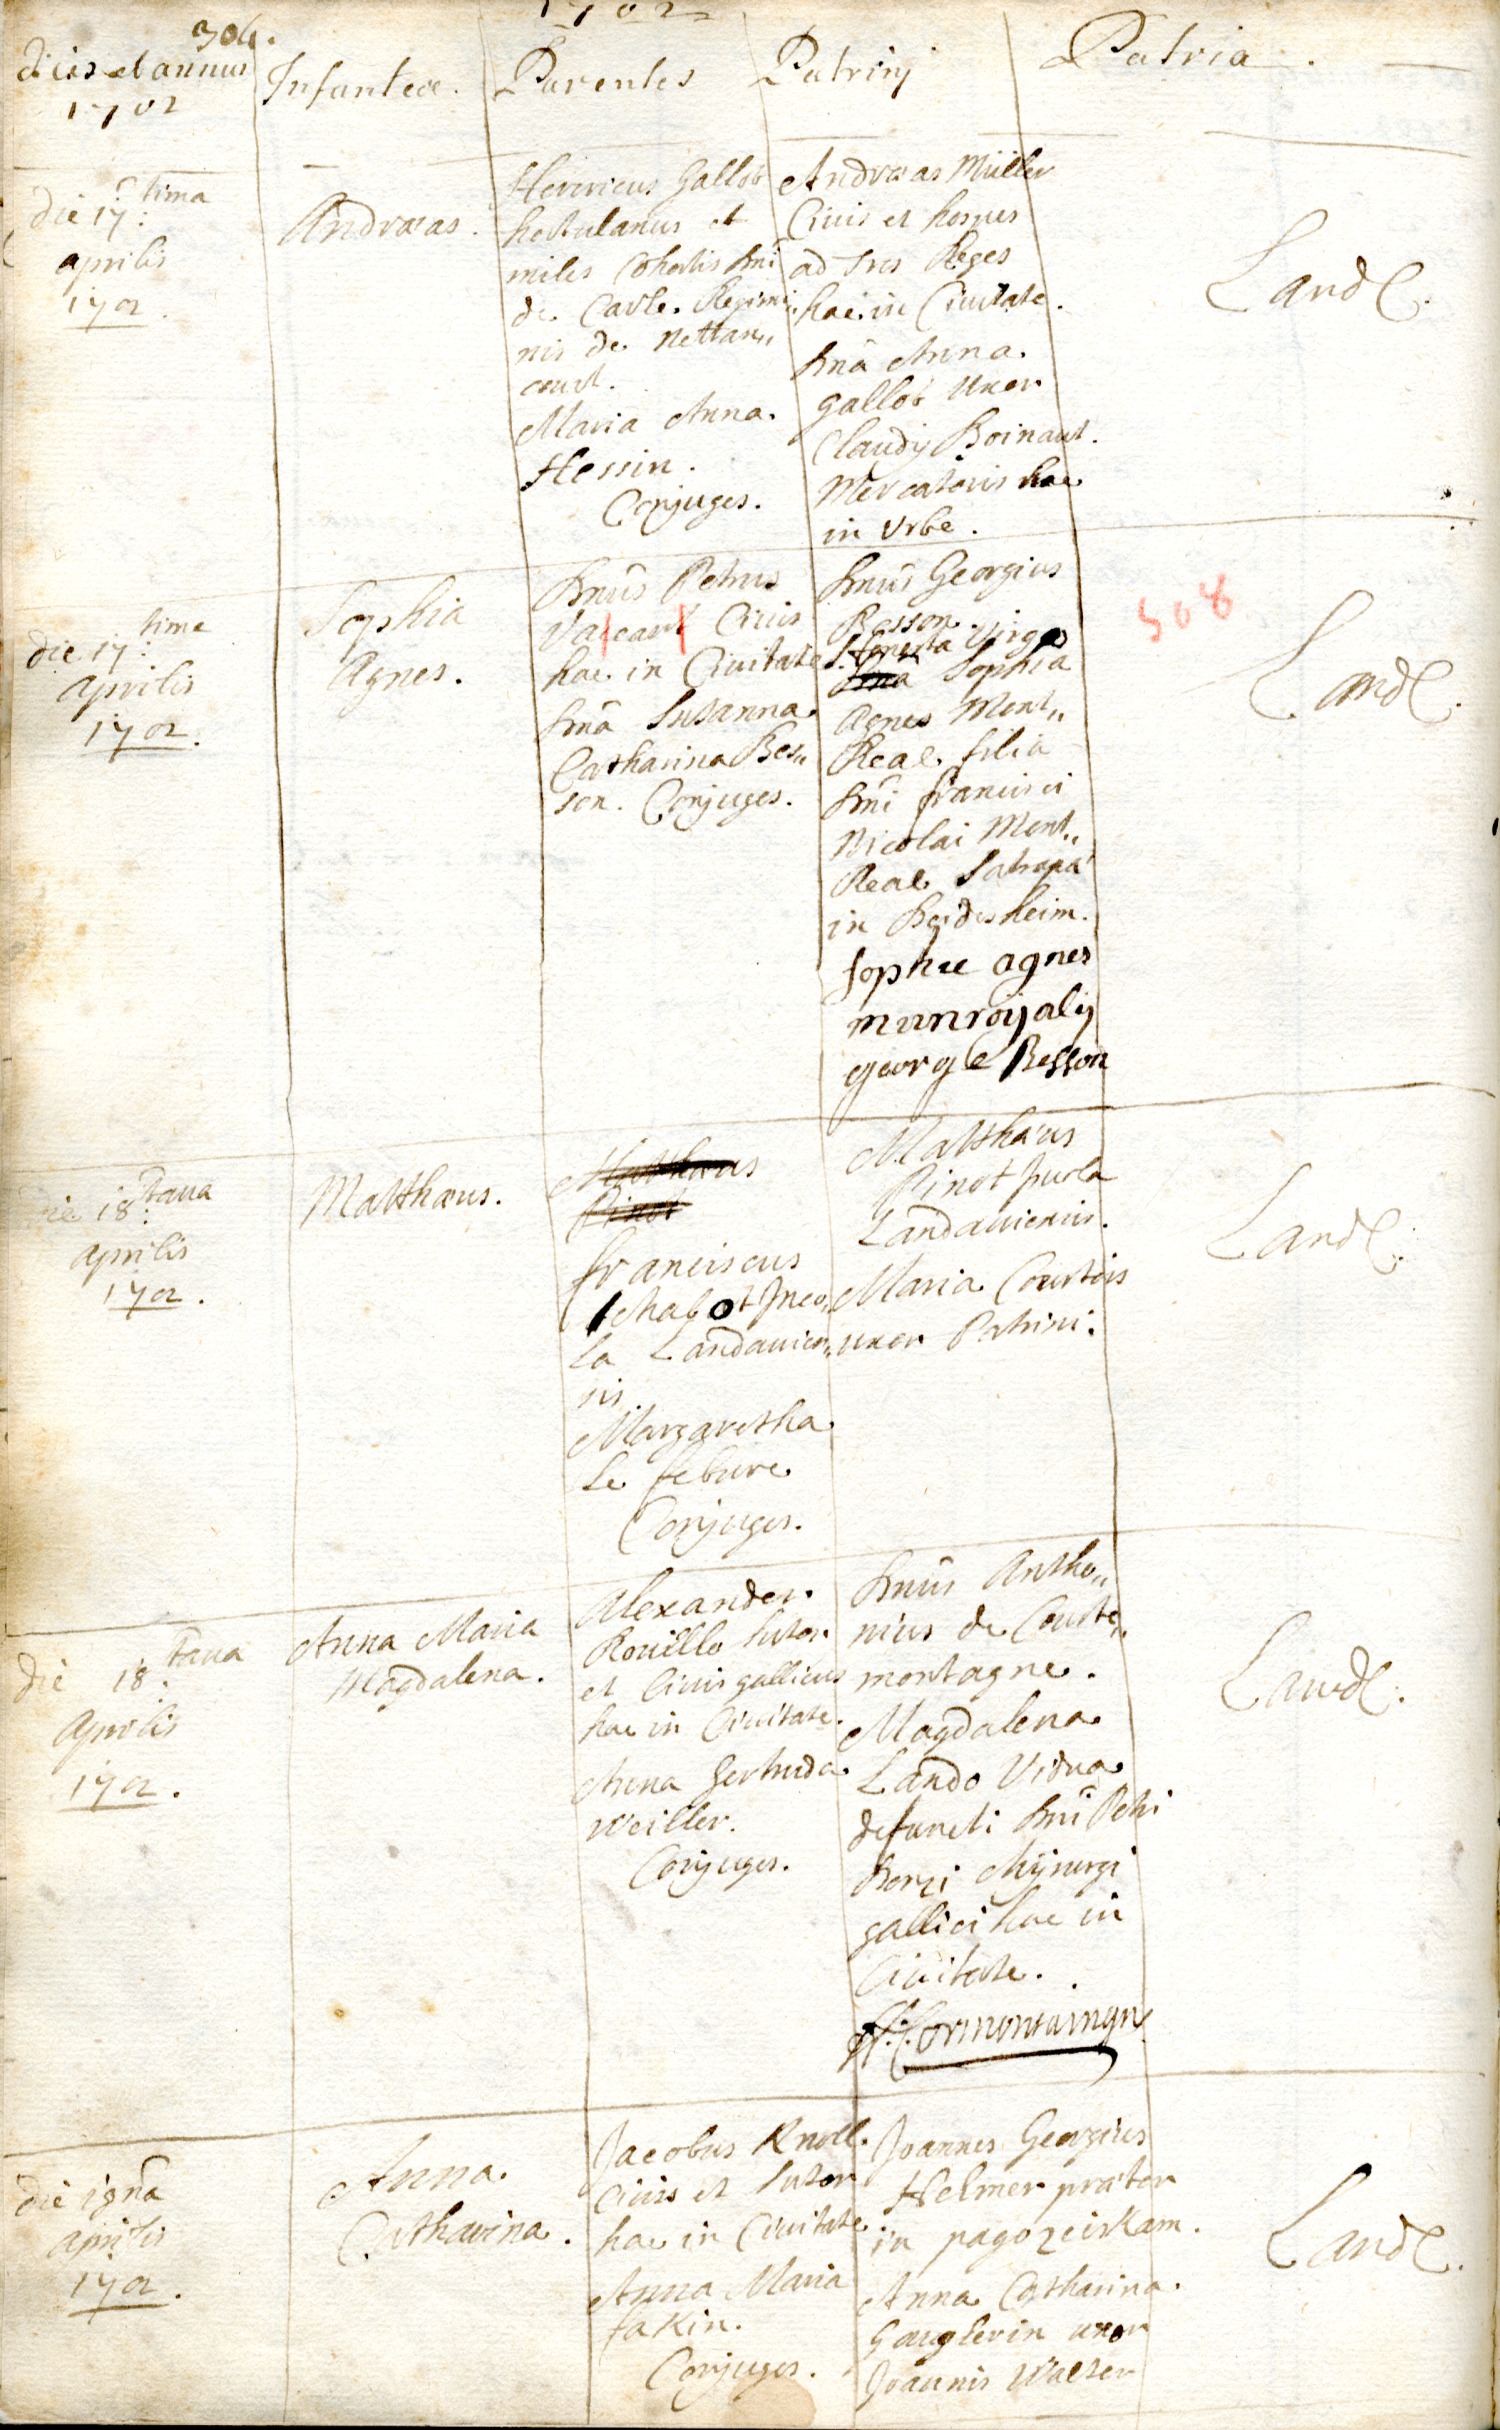 304.
1702
dies et annus
1702
Infantes.
Parentes
Patrinj
Patria.
die 17: tima
aprilis
1702.
Andræas.
Henricus Gallot
hortulanus et
miles Cohortis dni
de Carle. Regimi„
nis de Nettan„
court.
Maria Anna.
Hessin.
Conjuges.
Andræas Müller
Civis et hospes
ad tres Reges
hac in Civitate.
dnā Anna.
Gallot uxor
Claudij Boinaut.
Mercatoris hac
in Urbe.
Land.
die 17: tima
aprilis
1702.
Sophia
Agnes.
dnūs Petrus
Civis
hac in Civitate
dnā Susanna.
Catharina Bes„
son. Conjuges.
dnūs Georgius
Besson.
Honesta Virgo
Sophia
Agnes Mont„
Real. filia
dni francisci
Nicolai Mont„
Real Satrapa
in
Sophie agnes
george Besson
508
Land.
die 18: tava
aprilis
1702.
Matthæus.
Matthæus
Pinot
franciscus
Jnco„
la Landavien„
sis
Margaretha
le febure
Conjuges.
Matthæus
Pinot Incola
Landaviensis.
Maria Courtois
uxor Patrini.
Land.
die 18: tava
aprilis
1702.
Anna Maria
Magdalena.
Alexander
Rouille sutor
et Civis gallicus
hac in Civitate.
Anna Gertruda
Weiller.
Conjuges.
dnūs Antho„
nius de Courte„
montagne.
Magdalena
Lando Vidua
defuncti dni Petri
Chijrurgi
gallici hac in
Civitate.
Cormontaingn
Land.
die 19na
aprilis
1702.
Anna
Catharina.
Jacobus Knoll.
Civis et sutor
hac in Civitate
Anna Maria
fakin.
Conjuges.
Joannes Georgius
Helmer prætor
in pago zeiskam.
Anna Catharina.
uxor
Joannis Walter
Land.